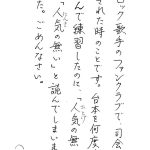 ロック歌手のファンクラブで、司会
された時のことです。台本を何度
んで練習したのに、「人気の無
「人気の無い」と読んでしまいま
た。ごめんなさい。